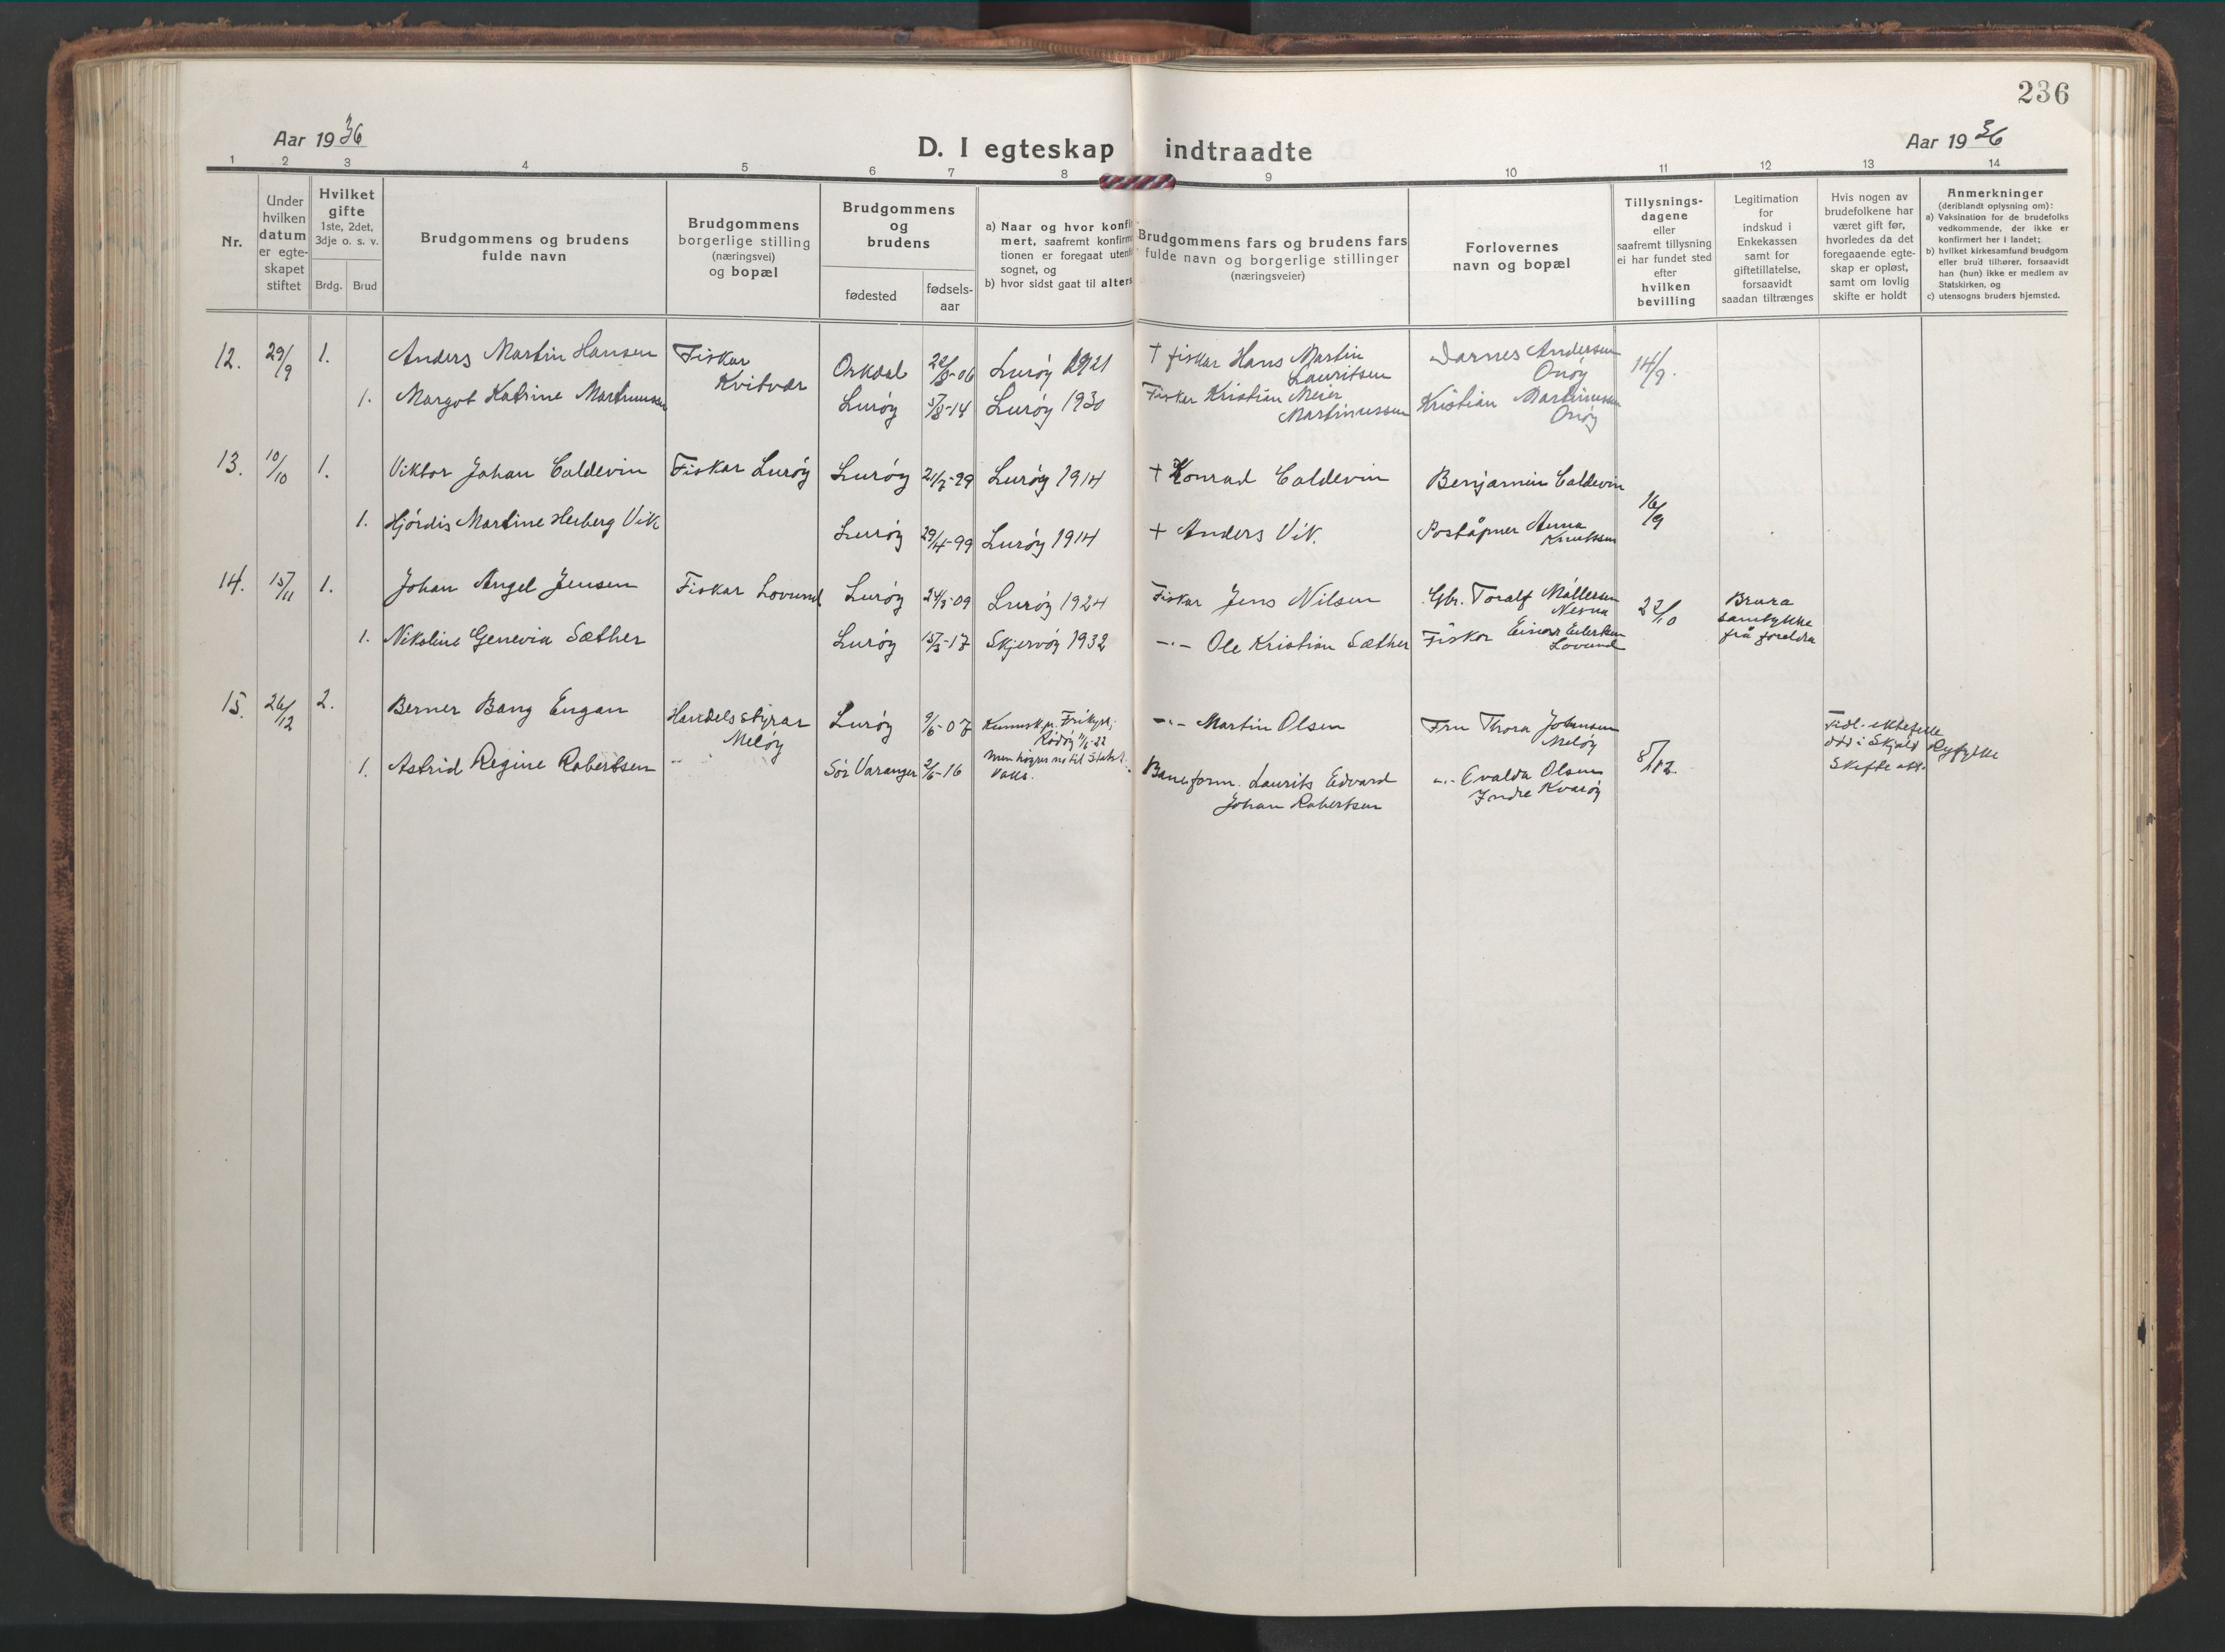 236
Aar 1936
D. I egteskap indtraadte
Aar 1936
1 2 3 4 5 6 7 8 9 10 11 12 13 14
Nr.
Under hvilken datum er egte-skapet stiftet
Hvilket gifte
1ste, 2det, 3dje o. s. v.
Brdg. Brud
Brudgommens og brudens fulde navn
Brudgommens borgerlige stilling (næringsvei) og bopæl
Brudgommens og brudens
fødested
fødsels-aar
a) Naar og hvor konfir
mert, saafremt konfirm
tionen er foregaat utenf
sognet, og
b) hvor sidst gaat til alters
Brudgommens fars og brudens fars
fulde navn og borgerlige stillinger
(næringsveier)
Forlovernes
navn og bopæl
Tillysnings-
dagene
eller
saafremt tillysning
ei har fundet sted
efter
hvilken
bevilling
Legitimation
for
indskud i
Enkekassen
samt for
giftetillatelse,
forsaavidt
saadan tiltrænges
Hvis nogen av
brudefolkene har
været gift før,
hvorledes da det
foregaaende egte-
skap er opløst,
samt om lovlig
skifte er holdt
Anmerkninger
(deriblandt oplysning om):
a) Vaksination for de brudefolks
vedkommende, der ikke er
konfirmert her i landet;
b) hvilket kirkesamfund brudgom
eller brud tilhører, forsaavidt
han (hun) ikke er medlem av
Statskirken, og
c) utensogns bruders hjemsted.
12. 29/9 1. Anders Martin Hansen Fiskar Kvitvær Orkdal 22/8-06 Lurøy 1921 † fiskar Hans Martin Lauritsen Andersen Onøy 14/9.
1. Margot Katrine Martinussen Lurøy 5/8-14 Lurøy 1930 Fiskar Kristian Meier Martinussen Kristian Martinussen Onøy
13. 10/10 1. Viktor Johan Coldevin Fiskar Lurøy Lurøy 21/7-99 Lurøy 1914 † Konrad Coldevin Benjamin Coldevin 16/9
1. Hjørdis Martine Heiberg Vik Lurøy 29/4-99 Lurøy 1914 † Anders Vik. Poståpner Anna Knutssen
14. 15/11 1. Johan Angel Jensen Fiskar Lovund Lurøy 24/5-09 Lurøy 1924 Fiskar Jens Nilsen Gbr. Toralf Møllersen Nesna 22/10 Brura samtykke frå foreldra
1. Nikoline Genevia Sæther Lurøy 15/3-17 Skjervøy 1932 -"- Ole Kristian Sæther Fiskar Einar Eilertsen Lovund
15. 26/12 2. Berner Bang Engan Handelsstyrar Meløy Lurøy 9/6-07 Rødøy 11/6-22 -"- Martin Olsen Fru Thora Johansen Meløy 5/12. Tidl. ektefelle død i Skjold Ryfylke
1. Astrid Regine Robertsen -"- Sør Varanger 2/6-16 Baneform. Laurits Edvard Johan Robertsen -"- Evalda Olsen Indre Kvarøy Skifte